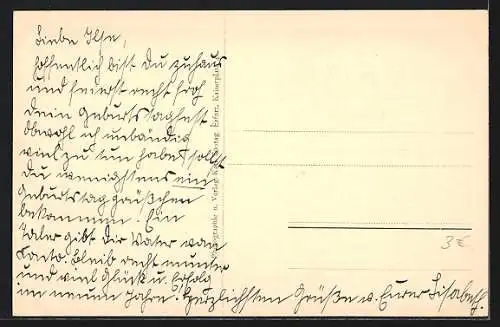 Liebe Ilse,
hoffentlich bist Du zuhaus
und feierst recht froh
Dein Geburtstagsfest
Obwohl ich unbändig
viel zu tun habe, sollst
Du wenigstens ein
Geburtstagsgrüßchen
bekommen! Ein
Taler gibt Dir Vater von
Bleib recht munter
und viel Glück u. Erfolg
im neuen Jahre! Herzlichsten Grüße v. Eurer Elisabeth.
Photographie u. Verlag Erfurt, Kaiserplatz
3€